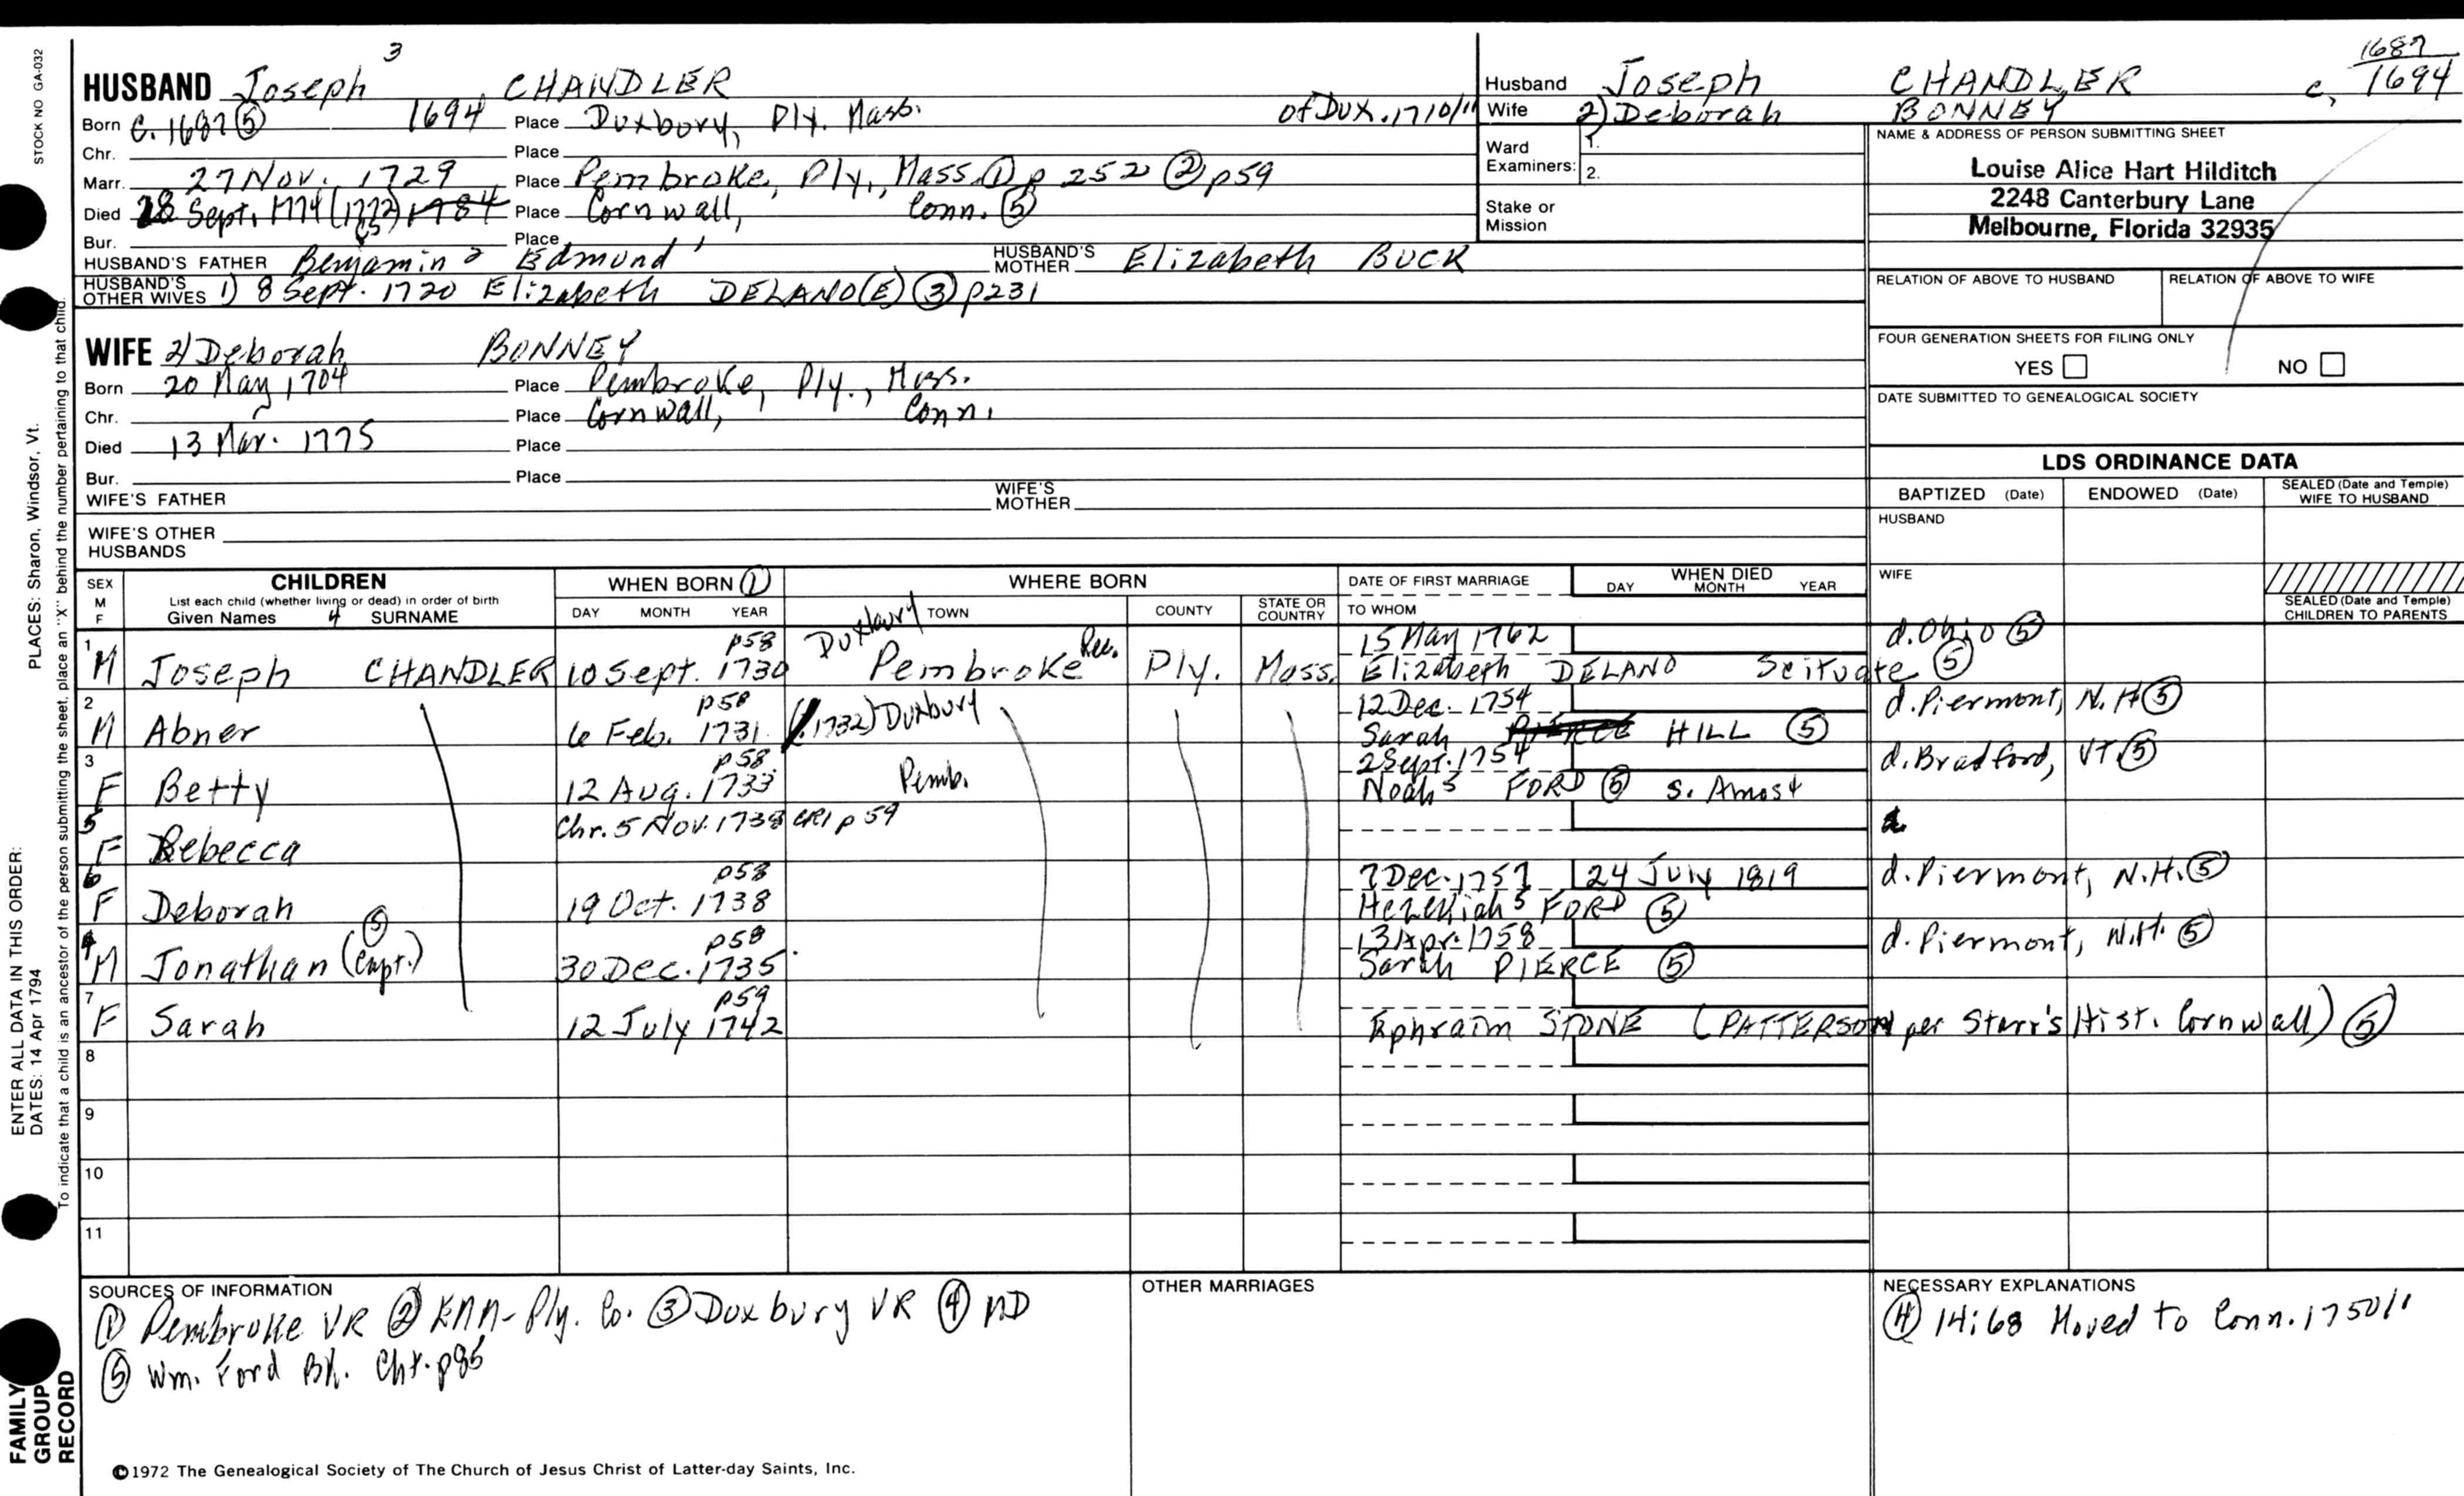 STOCK NO GA-032
3
HUSBAND Joseph CHANDLER
Born c. 1687 ⑤ 1694 Place Duxbury, Ply. Mass. of DUX. 1710/11
Chr. Place
Marr. 27 Nov. 1729 Place Pembroke, Ply., Mass. ① p 252 ② p59
Died 28 Sept. 1774 (1772) 1784 Place Cornwall, Conn. ⑤
(5)
Bur. Place
HUSBAND'S FATHER Benjamin 2 Edmund 1 HUSBAND'S MOTHER Elizabeth BUCK
HUSBAND'S OTHER WIVES 1) 8 Sept. 1720 Elizabeth DELANO(E) ③ p231
WIFE 2) Deborah BONNEY
Born 20 May 1704 Place Pembroke, Ply., Mass.
Chr. Place Cornwall, Conn.
Died 13 Mar. 1775 Place
Bur. Place
WIFE'S FATHER WIFE'S MOTHER
WIFE'S OTHER HUSBANDS
1687
Husband Joseph CHANDLER c. 1694
Wife 2) Deborah BONNEY
Ward Examiners: 1.
2.
Stake or Mission
NAME & ADDRESS OF PERSON SUBMITTING SHEET
Louise Alice Hart Hilditch
2248 Canterbury Lane
Melbourne, Florida 32935
RELATION OF ABOVE TO HUSBAND RELATION OF ABOVE TO WIFE
FOUR GENERATION SHEETS FOR FILING ONLY
YES NO
DATE SUBMITTED TO GENEALOGICAL SOCIETY
LDS ORDINANCE DATA
BAPTIZED (Date) ENDOWED (Date) SEALED (Date and Temple) WIFE TO HUSBAND
HUSBAND
WIFE
SEALED (Date and Temple) CHILDREN TO PARENTS
SEX M F CHILDREN WHEN BORN ① WHERE BORN DATE OF FIRST MARRIAGE WHEN DIED
List each child (whether living or dead) in order of birth DAY MONTH YEAR TOWN COUNTY STATE OR COUNTRY TO WHOM DAY MONTH YEAR
Given Names 4 SURNAME
p58 Duxbury Rec. 15 May 1762 d. Ohio ⑤
1 M Joseph CHANDLER 10 Sept. 1730 Pembroke Ply. Mass. Elizabeth DELANO Scituate ⑤
p58 12 Dec. 1754 d. Piermont, N.H ⑤
2 M Abner 6 Feb. 1731 (1732) Duxbury Sarah PIERCE HILL ⑤
p58 2 Sept. 1754 d. Bradford, VT ⑤
3 F Betty 12 Aug. 1733 Pemb. Noah 5 FORD ⑤ s. Amos 4
5 F Rebecca Chr. 5 Nov. 1738 CR1 p 59
p58 7 Dec. 1757 24 July 1819 d. Piermont, N.H. ⑤
6 F Deborah 19 Oct. 1738 Hezekiah 5 FORD ⑤
p58 13 Apr. 1758 d. Piermont, N.H. ⑤
4 M Jonathan (Capt.) ⑤ 30 Dec. 1735 Sarah PIERCE ⑤
p59
7 F Sarah 12 July 1742 Ephraim STONE (PATTERSON per Starr's Hist. Cornwall) ⑤
8
9
10
11
SOURCES OF INFORMATION
① Pembroke VR ② Ply. Co. ③ Duxbury VR ④ MD
⑤ Wm. Ford Bk. Cht. p85
OTHER MARRIAGES
NECESSARY EXPLANATIONS
④ 14:68 Moved to Conn. 1750/1
©1972 The Genealogical Society of The Church of Jesus Christ of Latter-day Saints, Inc.
PLACES: Sharon, Windsor, Vt.
ENTER ALL DATA IN THIS ORDER:
DATES: 14 Apr 1794
To indicate that a child is an ancestor of the person submitting the sheet, place an "X" behind the number pertaining to that child.
FAMILY GROUP RECORD